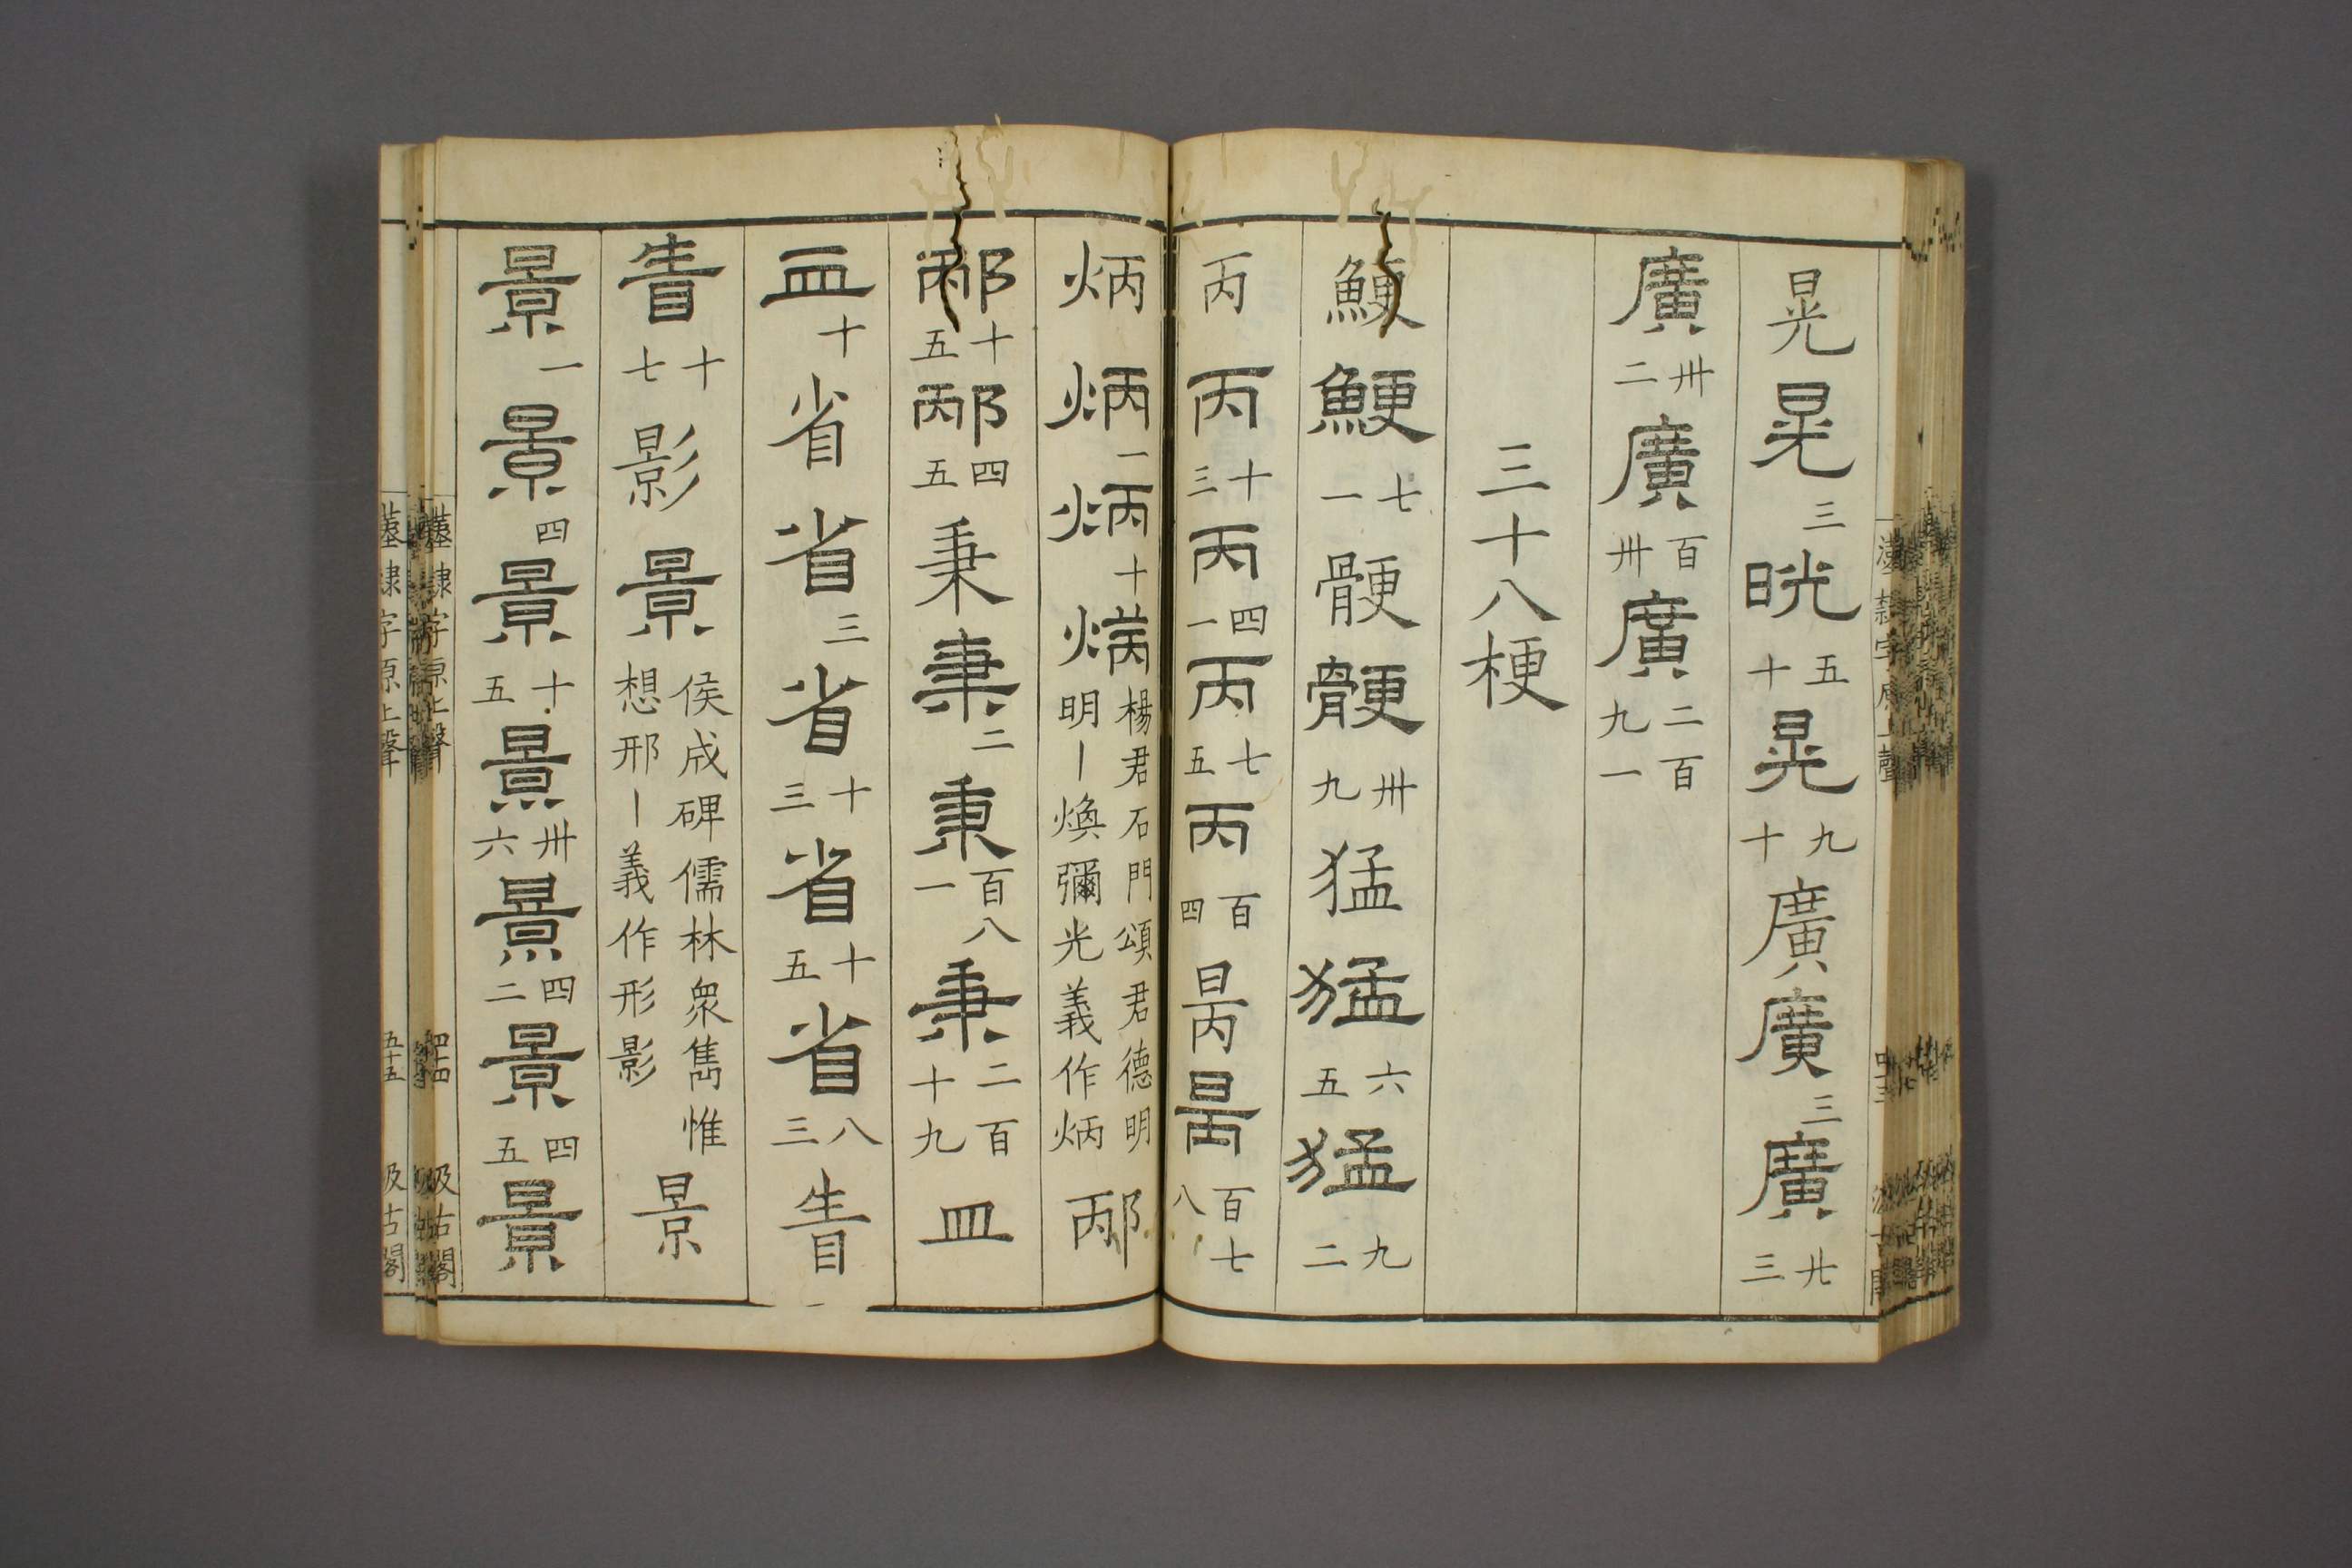 晃晃三晄五十晃九十廣廣三廣廿三
廣卅二廣百卅廣二百九一
三十八梗
鯁鯁七一骾骾卅九猛猛六五猛九二
丙丙十三丙四一丙七五丙百四昺昺百七八
炳炳一炳十楊君石門頌君德明明〡煥彌光義作炳邴
邴十五邴四五秉秉二秉百八一秉二百十九皿
皿十省省三省十三省十五省八三眚
眚十七影景侯成碑儒林衆雋惟想邢〡義作形影景
景一景四景十五景卅六景四二景四五景
隸字原上聲
汲古閣
五十五
汲古閣